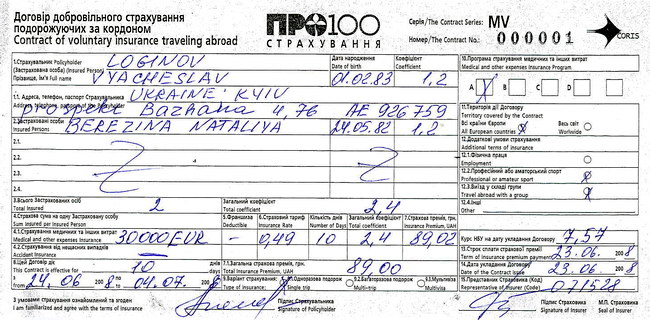 Договір добровільного страхування
подорожуючих за кордоном
Contract of voluntary insurance traveling abroad
ПРО100
СТРАХУВАННЯ
Серія/The Contract Series: MV
Номер/The Contract No.: 000001
CORIS
1.Страхувальник Policyholder
(Застрахована особа) (Insured Person)
Прізвище, ім'я Full name
LOGINOV
VYACHESLAV
Дата народження
Date of birth
01.02.83
Коефіцієнт
Coefficient
1,2
1.1. Адреса, телефон, паспорт Страхувальника
UKRAINE KYIV
prospekt Bazhana 4,76 AE 926759
2.Застраховані особи
Insured Persons
BEREZINA NATALIYA 24.05.82 1,2
2.1.
2.2.
2.3.
2.4.
3.Всього Застрахованих осіб
Total Insured
2
Загальний коефіцієнт
Total coefficient
2,4
4.Страхова сума на одну Застраховану особу
Sum insured per Insured Person
5.Франшиза
Deductible
6.Страховий тариф
Insurance Rate
Кількість днів
Number of Days
Загальний коефіцієнт
Total coefficient
7.Страхова премія, грн
Insurance Premium, UAH
4.1.Страхування медичних та інших витрат
Medical and other expenses Insurance
30000 EUR - 0,49 10 2,4 89,02
4.2.Страхування від нещасних випадків
Accident Insurance
8.Цей Договір діє
This Contract is effective for
10
днів
days
from 24.06 2008 to 04.07 2008
7.1.Загальна страхова премія, грн
Total Insurance Premium, UAH
89,00
9.Варіант страхування:
Type of insurance:
9.1.Одноразова подорож
Single trip
9.2.Багаторазова подорож
Multi-trip
9.3.Мультивіза
Multivisa
З умовами страхування ознайомлений та згоден
I am familiarized and agree with the terms of Insurance
Підпис Страхувальника
Signature of Policyholder
10.Програма страхування медичних та інших витрат
Medical and other expenses Insurance Program
A B C D
11.Територія дії Договору
Territory covered by the Contract
Всі країни Європи
All European countries
Весь світ
Worlwide
12.Додаткові умови страхування
Additional terms of insurance
12.1.Фізична праця
Employment
12.2.Професійно або аматорський спорт
Professional or amateur sport
12.3.Виїзд у складі групи
Travel abroad with a group
12.4.Інші
Other
Курс НБУ на дату укладання Договору 7,57
13.Строк сплати страхової премії
Term of Insurance premium payment
23.06. 2008
14.Дата укладання Договору
Date of the Contract Issue
23.06. 2008
15.Представник Страховика (Код)
Representative of Insurer (Code)
071528
Підпис Страховика
Signature of Insurer
М.П. Страховика
Seal of Insurer